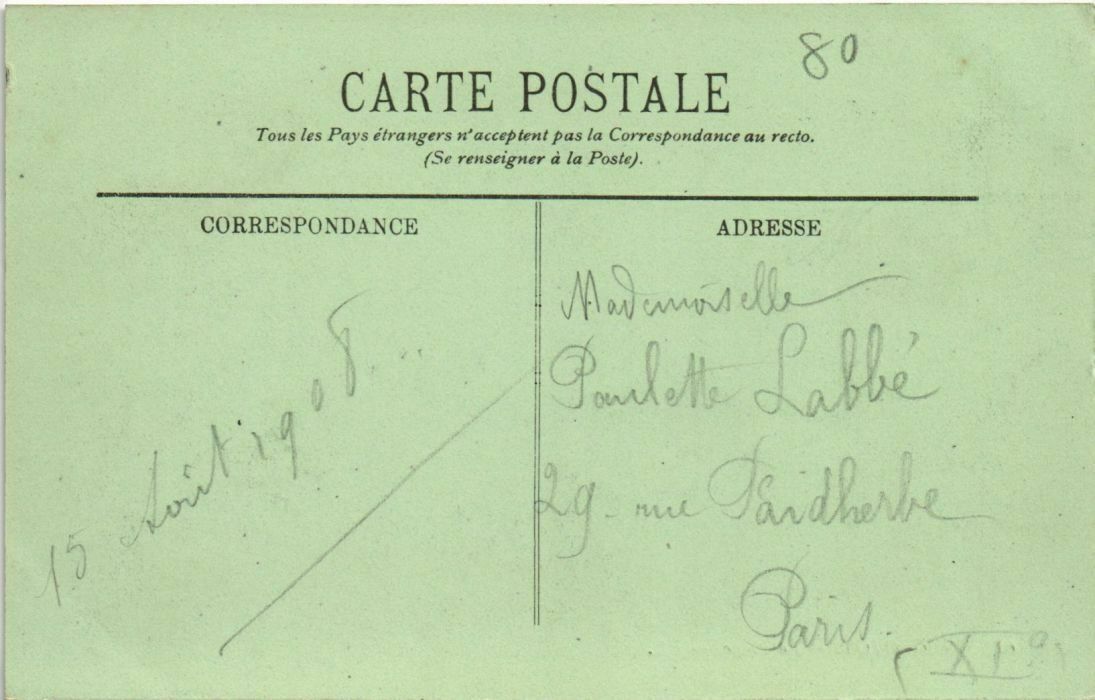 80
CARTE POSTALE
Tous les Pays étrangers n'acceptent pas la Correspondance au recto.
(Se renseigner à la Poste).
CORRESPONDANCE
15 Août 1908
ADRESSE
Mademoiselle
Paulette Labbé
29 rue Faidherbe
Paris.
XIe